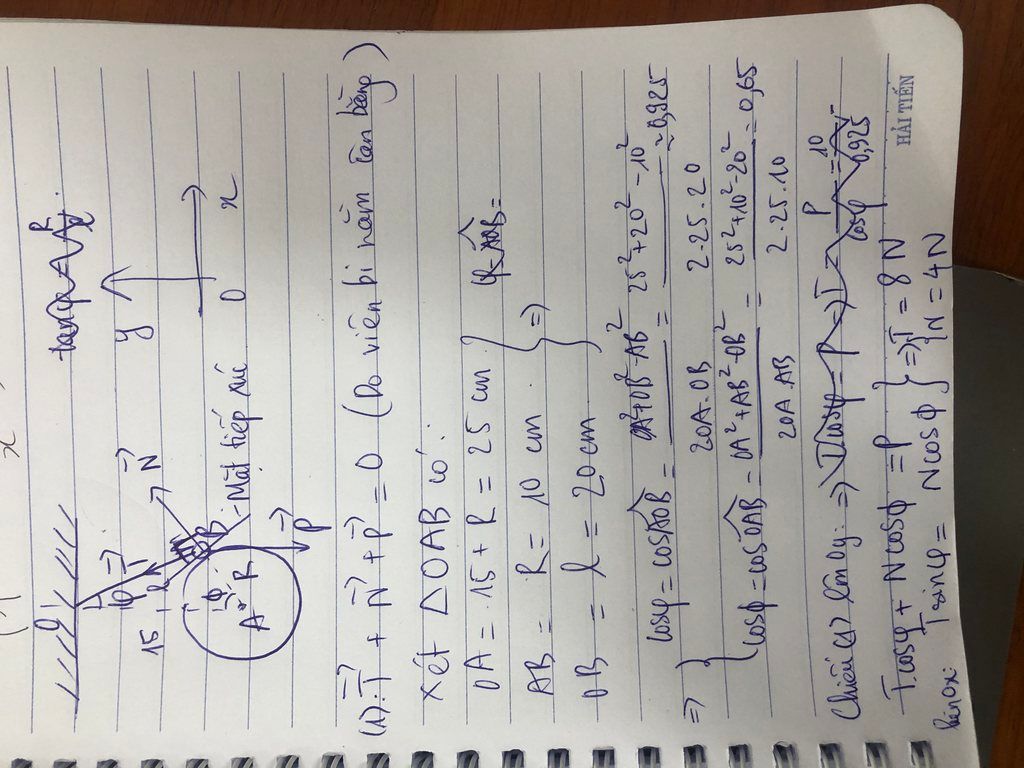 x
O
15
T⃗
φ
N⃗
B
R
A
ϕ
P⃗
Mặt tiếp xúc
y
O
x
(1): T⃗ + N⃗ + P⃗ = 0 (Do viên bi nằm cân bằng)
Xét △OAB có:
OA = 15 + R = 25 cm
AB = R = 10 cm
OB = l = 20 cm
} =>
=> { cosφ = cosAOB = (OA² + OB² - AB²) / (2OA.OB) = (25² + 20² - 10²) / (2.25.20) ≈ 0,925
cosϕ = cosOAB = (OA² + AB² - OB²) / (2OA.AB) = (25² + 10² - 20²) / (2.25.10) = 0,65
Chiếu (1) lên Oy: => Tcosφ = P => T = P / cosφ = 10 / 0,925
Tcosφ + Ncosϕ = P } => { T = 8 N
lên Ox: Tsinφ = Ncosϕ N = 4 N
HẢI TIẾN